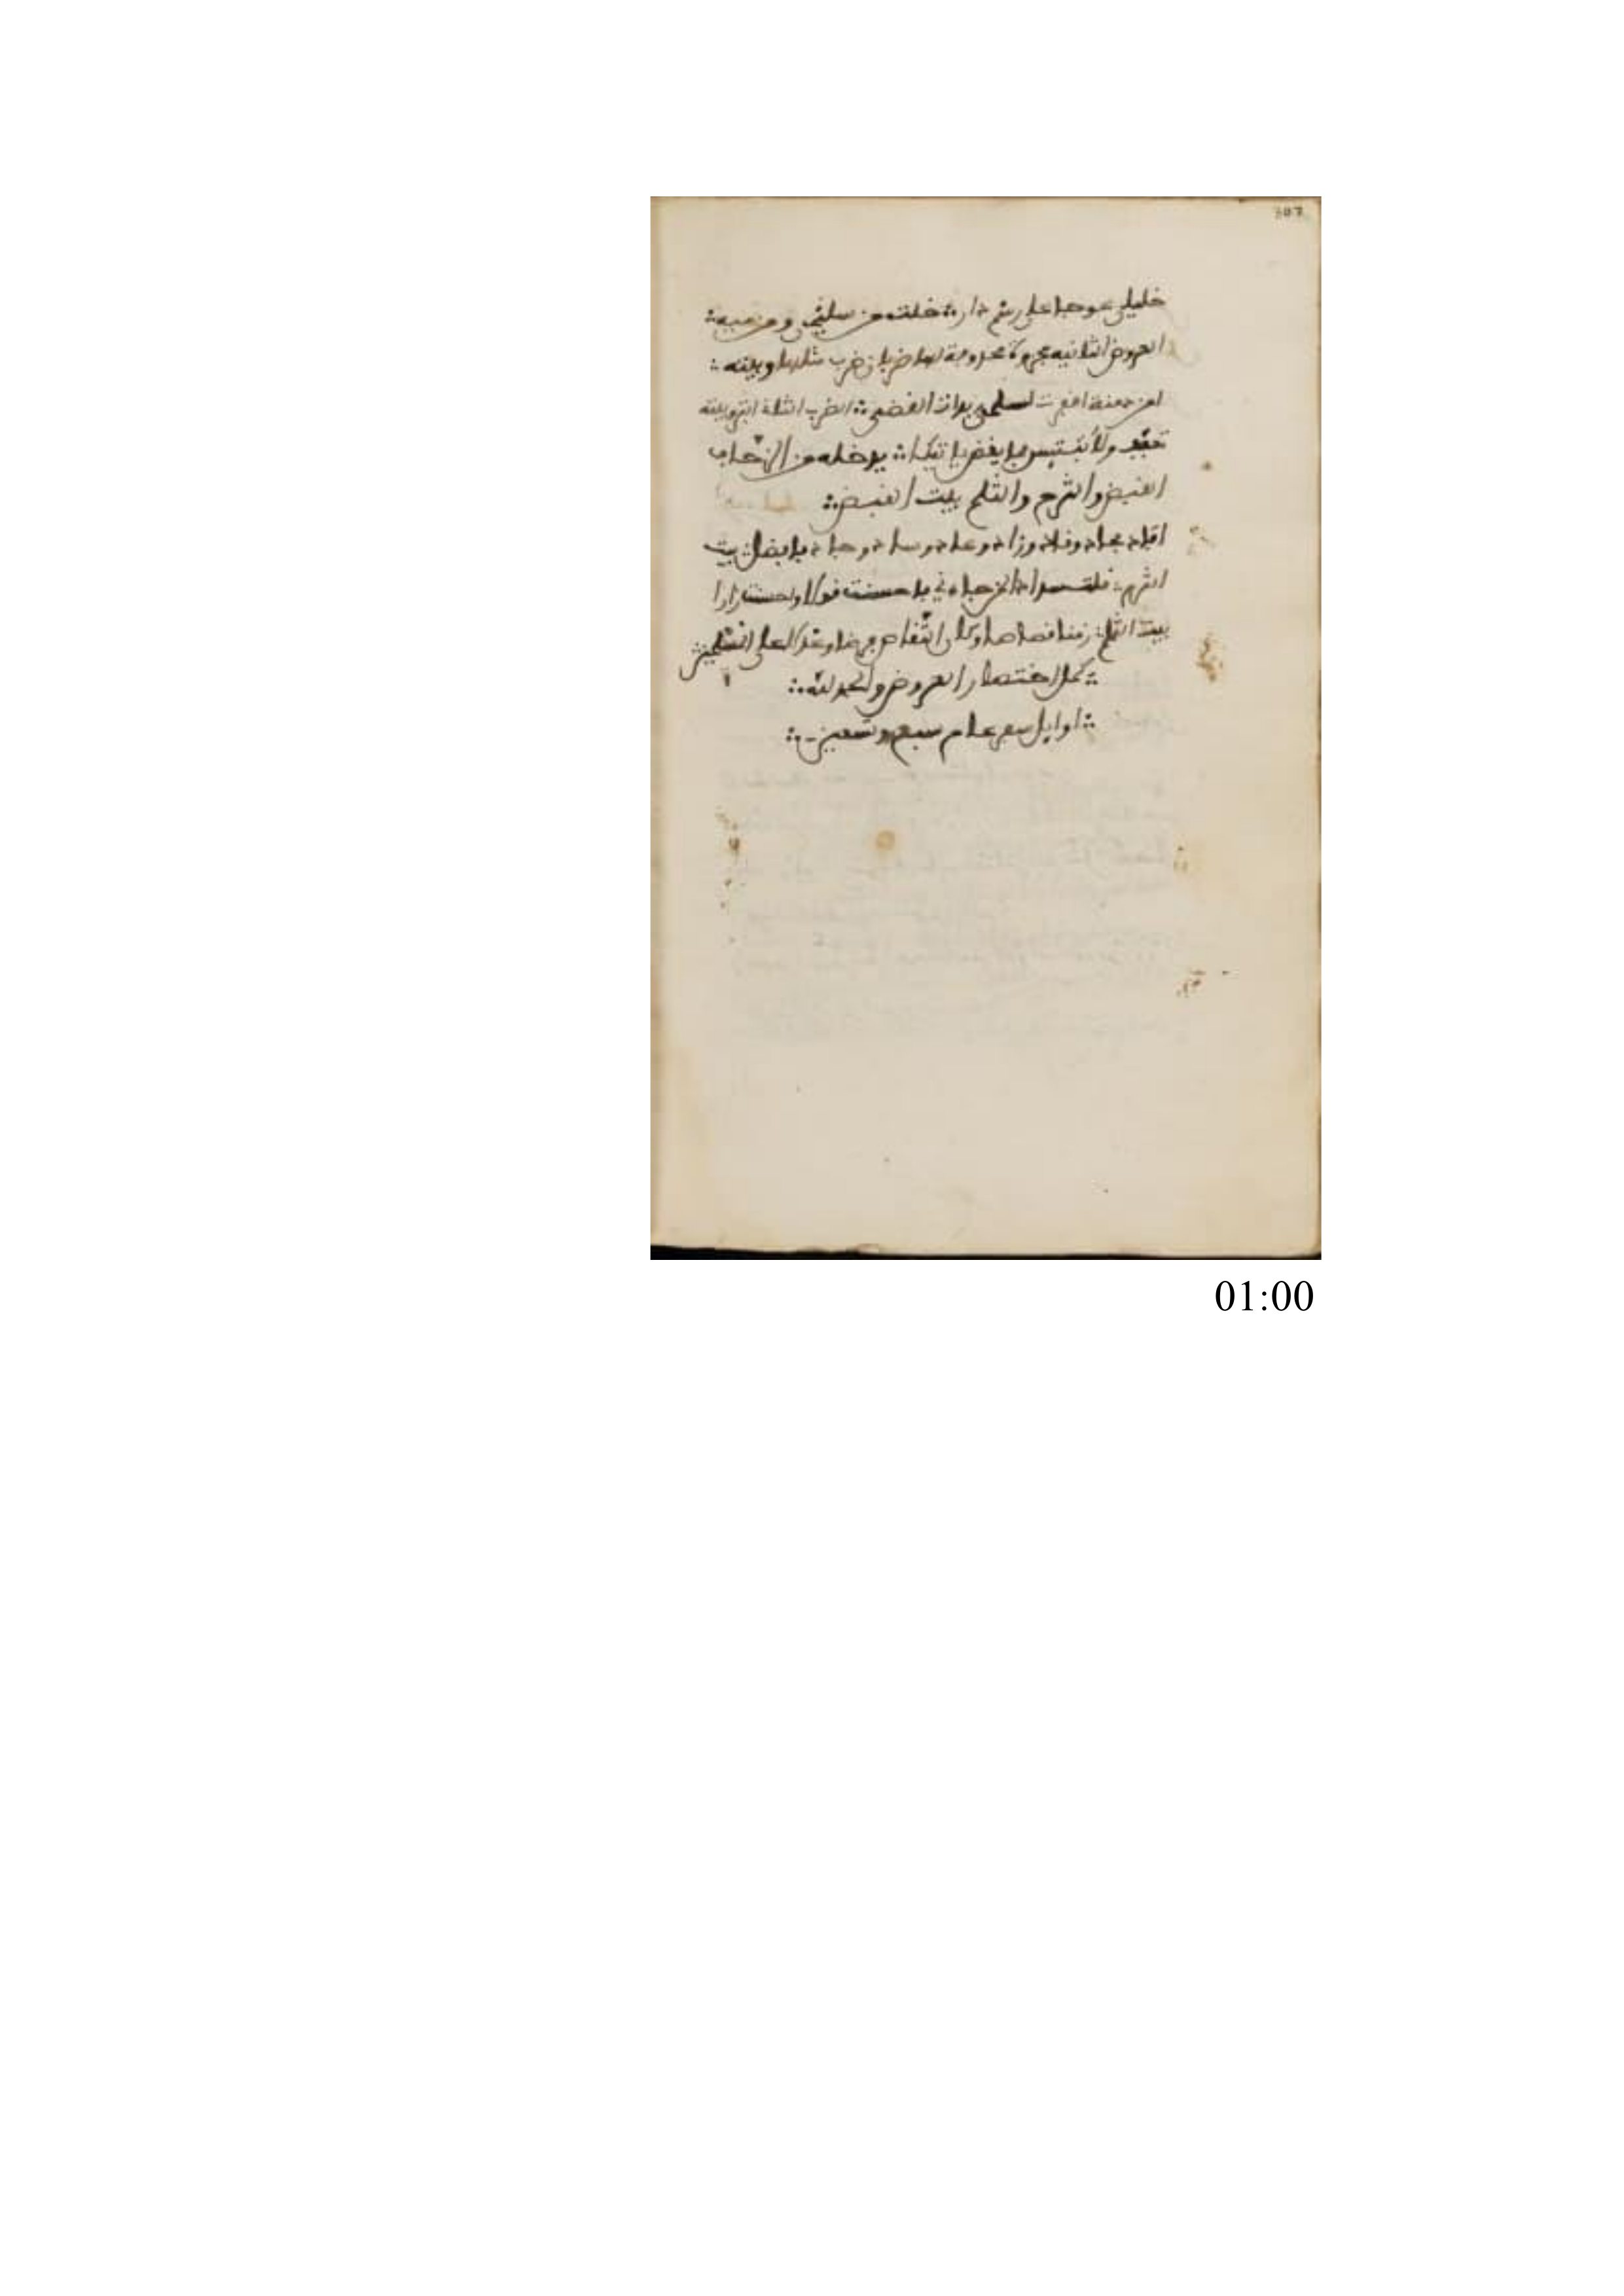 خليلي عوجا على رسم دار خلت من سليمى ومن ميه
العروض الثانيه مجزوة محذوفة لها ضربان ضرب مثلها وبيته
امن دمنة افقرت لسلمى بذات الغضى الضرب الثاني ابتر وبيته
تعفف ولا تبتيس فما يقض ياتيكا يدخله من الزحاف
القبض والثرم والثلم بيت القبض
افاد فجاد وساد وزاد وعاد وساد وجاد فافضل بيت
الثرم قلت سدادا لمن جاءني فاحسنت قولا واحسنت رايا
بيت الثلم رمنا قصاصا وكان التقاص فرضا وعدلا على المسلمين
كمل اختصار العروض والحمد لله
اوايل صفر عام سبع وتسعين
01:00